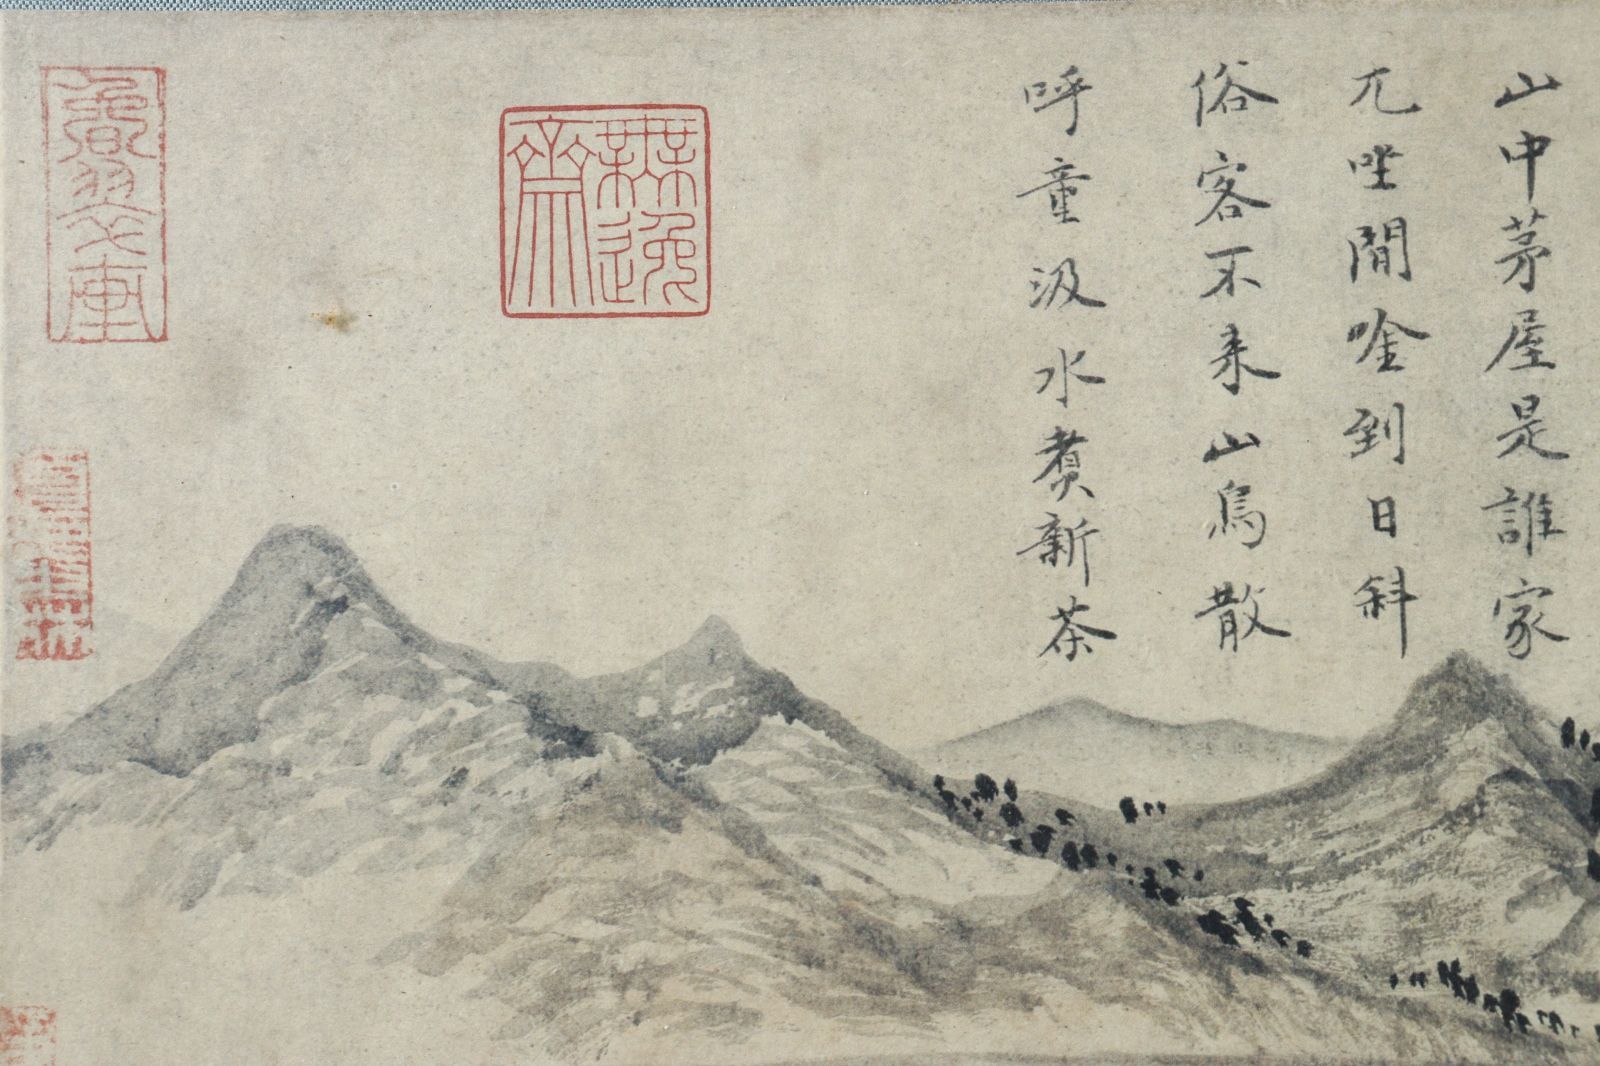 山中茅屋是誰家
兀坐閒唫到日斜
俗客不来山鳥散
呼童汲水煮新茶
無逸
齋